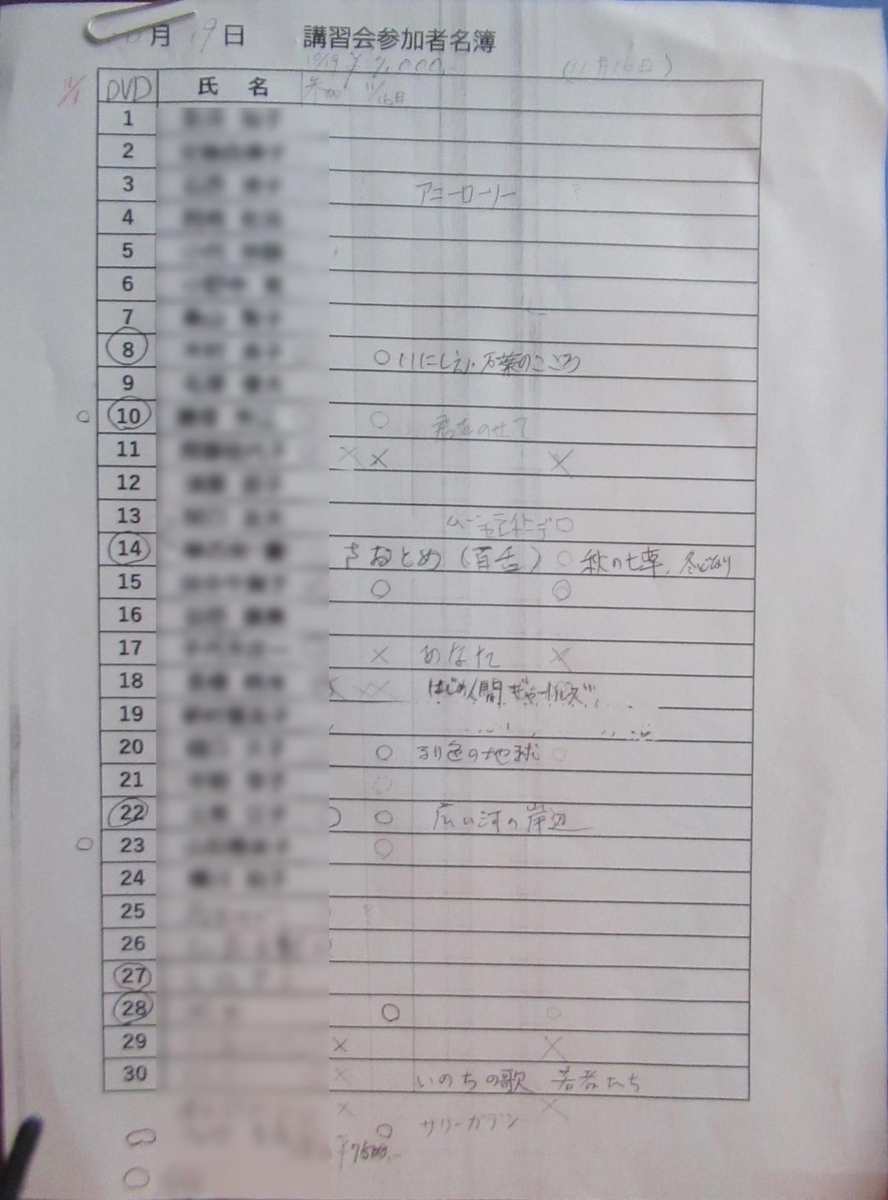 月19日 講習会参加者名簿
10/19 ¥7,000.- (11月16日)
11/1 DVD 氏 名 参加 11/16日
1
2
3 アニーローリー
4
5
6
7
8 ○ いにしえ・万葉のこころ
9
○ 10 ○ 君をのせて
11 × × ×
12
13 ○
14 さおとめ(百舌) ○ 秋の七草、
15 ○ ◎
16
17 × あなた ×
18 ×× はじめ人間ギャートルズ
19
20 ○ るり色の地球 ○
21 ○
22 ○ 広い河の岸辺
○ 23 ○
24
25
26
27
28 ○ ○
29 × ×
30 × いのちの歌 若者たち
× ×
○ ○ サリーガデン
○